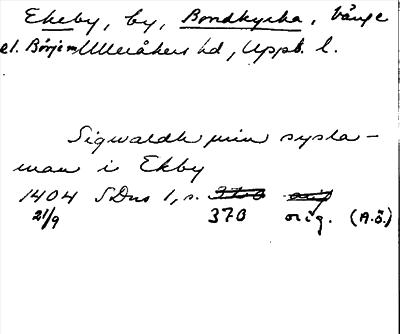 Ekeby, by, Bondkyrka, Vänge
el. Börje sn Ulleråkers hd, Upps. l.
Sigwaldh min sysla-
man i Ekby
1404 SDns 1, s.
21/9 370 orig. (A.Ö.)